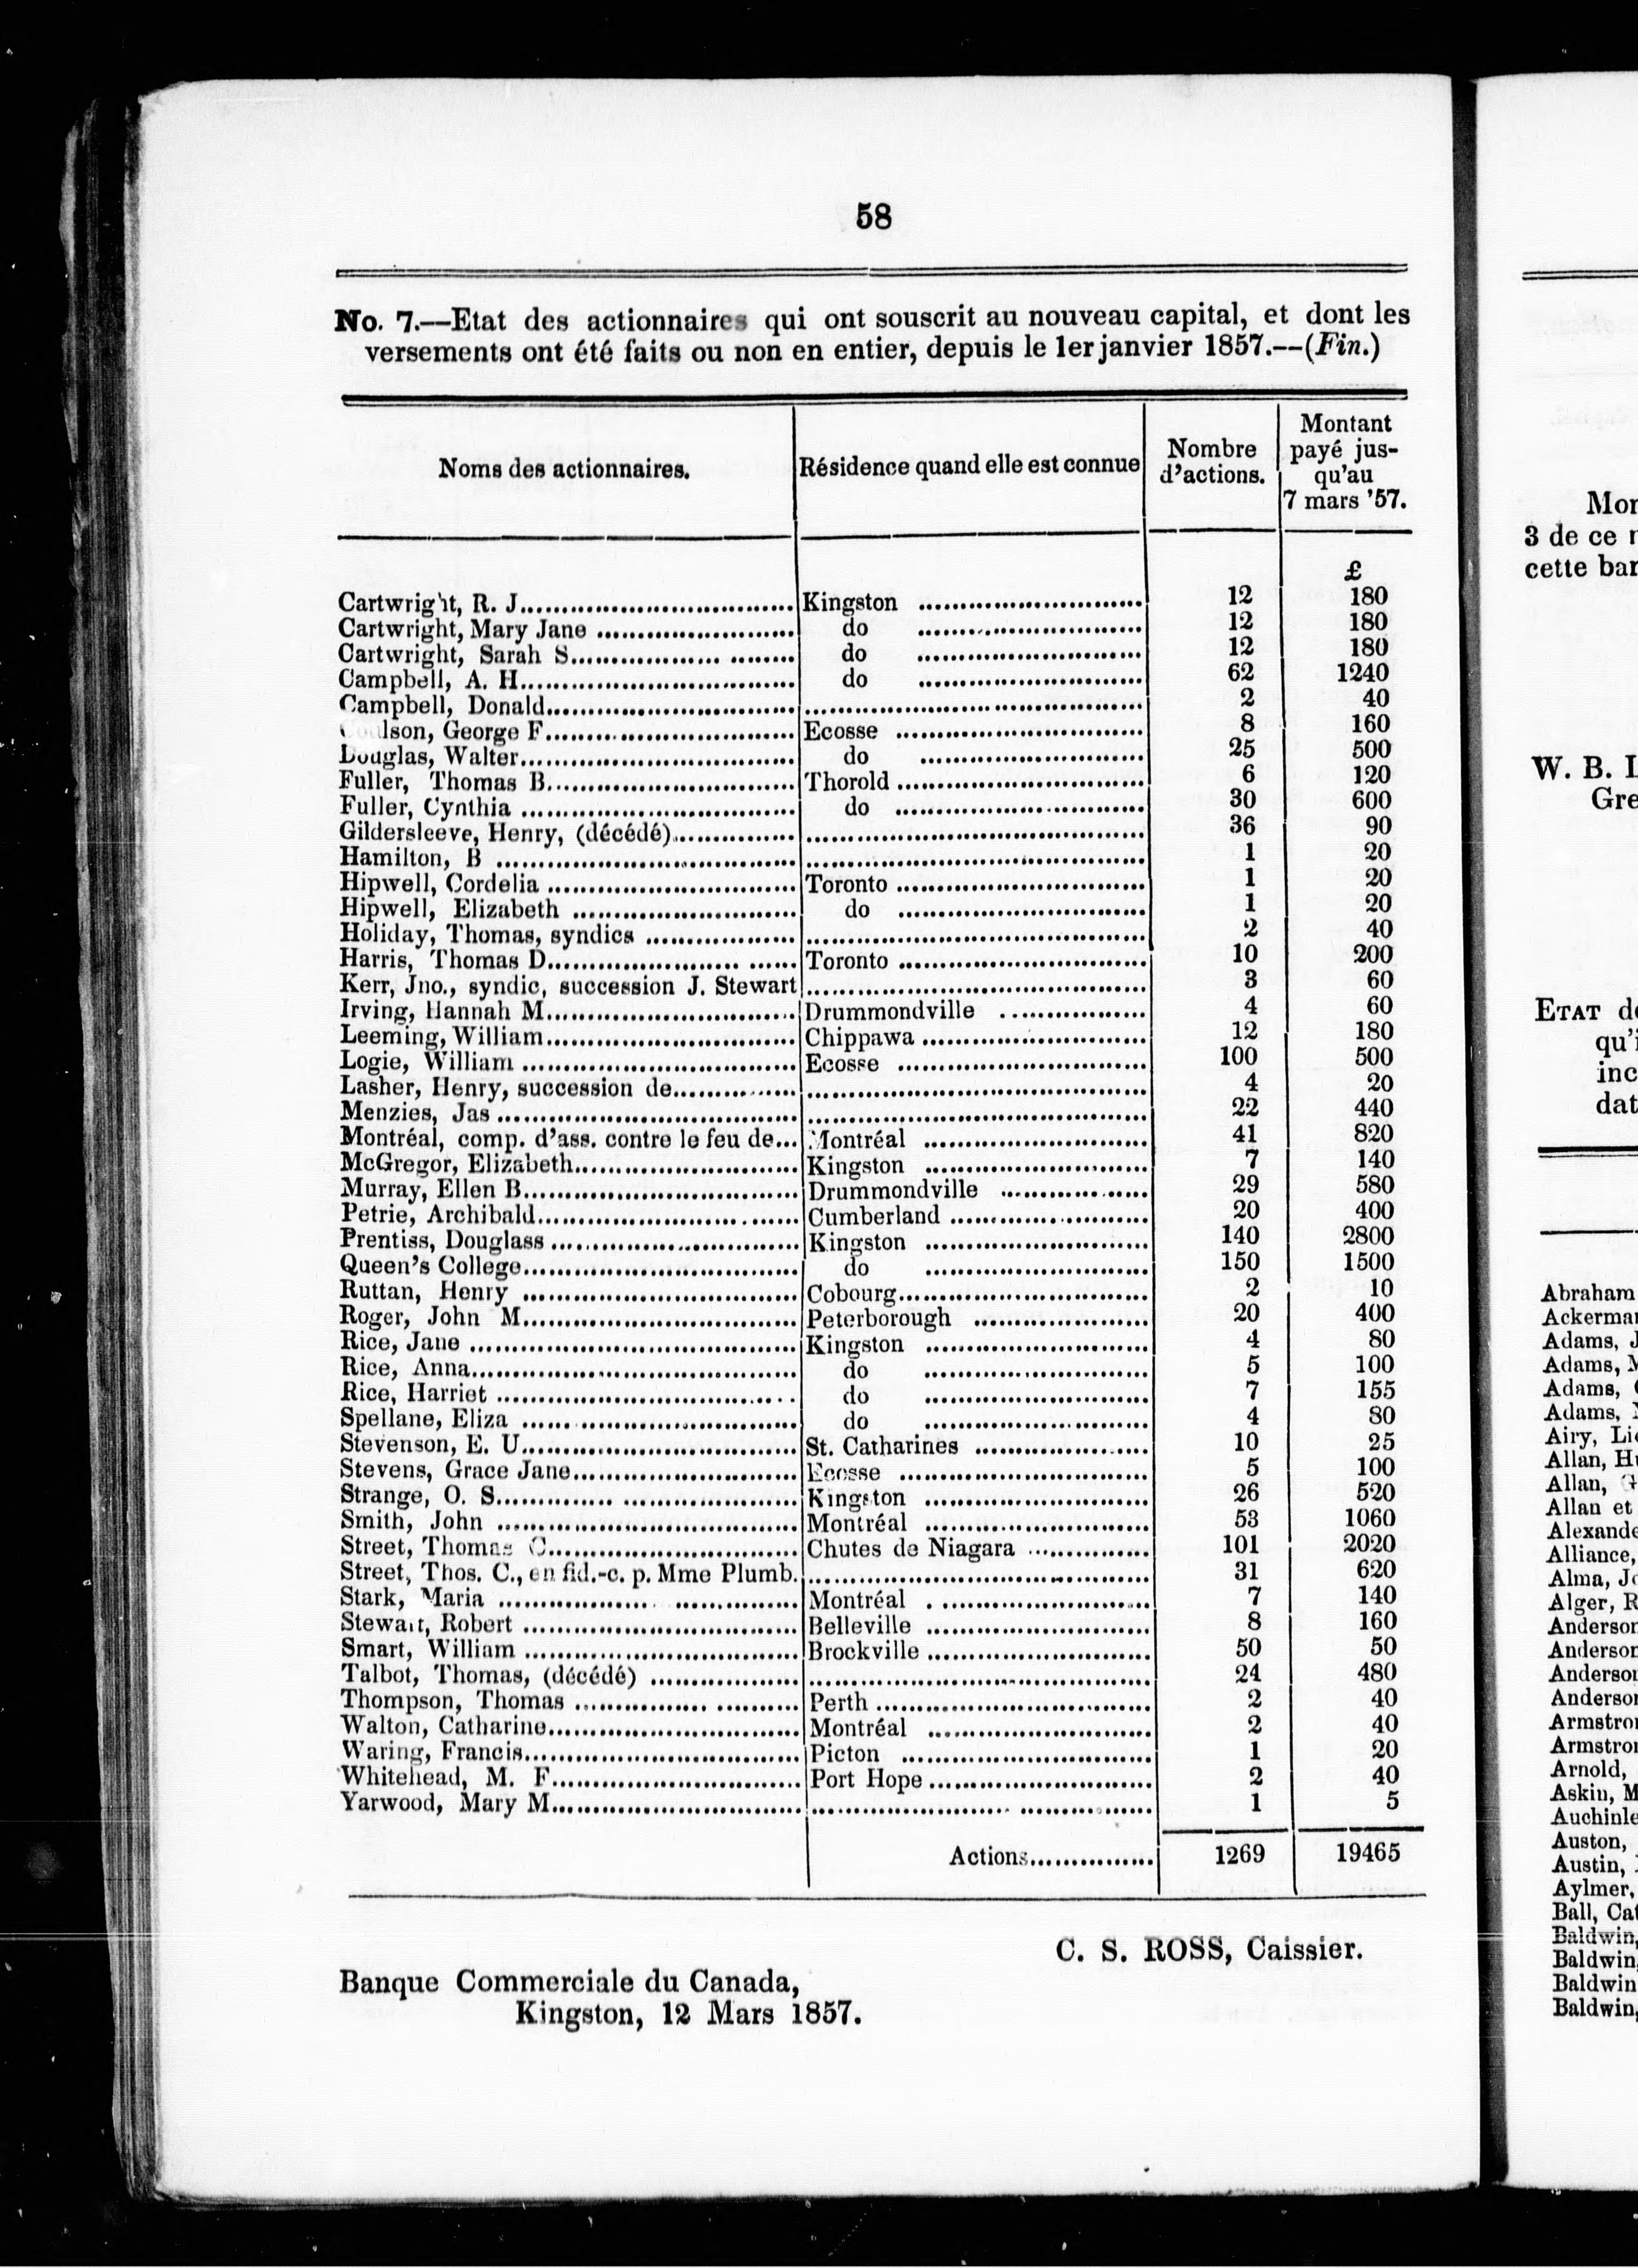 58
No. 7.—Etat des actionnaires qui ont souscrit au nouveau capital, et dont les
versements ont été faits ou non en entier, depuis le 1er janvier 1857.—(Fin.)
Noms des actionnaires. Résidence quand elle est connue Nombre d'actions. Montant payé jus-qu'au 7 mars '57.
£
Cartwright, R. J. Kingston 12 180
Cartwright, Mary Jane do 12 180
Cartwright, Sarah S. do 12 180
Campbell, A. H. do 62 1240
Campbell, Donald 2 40
lson, George F. Ecosse 8 160
Douglas, Walter do 25 500
Fuller, Thomas B. Thorold 6 120
Fuller, Cynthia do 30 600
Gildersleeve, Henry, (décédé) 36 90
Hamilton, B 1 20
Hipwell, Cordelia Toronto 1 20
Hipwell, Elizabeth do 1 20
Holiday, Thomas, syndics 2 40
Harris, Thomas D. Toronto 10 200
Kerr, Jno., syndic, succession J. Stewart 3 60
Irving, Hannah M. Drummondville 4 60
Leeming, William Chippawa 12 180
Logie, William Ecosse 100 500
Lasher, Henry, succession de 4 20
Menzies, Jas 22 440
Montréal, comp. d'ass. contre le feu de... Montréal 41 820
McGregor, Elizabeth Kingston 7 140
Murray, Ellen B. Drummondville 29 580
Petrie, Archibald Cumberland 20 400
Prentiss, Douglass Kingston 140 2800
Queen's College do 150 1500
Ruttan, Henry Cobourg 2 10
Roger, John M. Peterborough 20 400
Rice, Jane Kingston 4 80
Rice, Anna do 5 100
Rice, Harriet do 7 155
Spellane, Eliza do 4 80
Stevenson, E. U. St. Catharines 10 25
Stevens, Grace Jane Ecosse 5 100
Strange, O. S. Kingston 26 520
Smith, John Montréal 53 1060
Street, Thomas C. Chutes de Niagara 101 2020
Street, Thos. C., en fid.-c. p. Mme Plumb. 31 620
Stark, Maria Montréal 7 140
Stewart, Robert Belleville 8 160
Smart, William Brockville 50 50
Talbot, Thomas, (décédé) 24 480
Thompson, Thomas Perth 2 40
Walton, Catharine Montréal 2 40
Waring, Francis Picton 1 20
Whitehead, M. F. Port Hope 2 40
Yarwood, Mary M. 1 5
Actions 1269 19465
C. S. ROSS, Caissier.
Banque Commerciale du Canada,
Kingston, 12 Mars 1857.
3 de ce
cette
W. B.
ETAT
qu'i
Abraham
Adams,
Adams,
Adams,
Adams,
Airy,
Allan,
Allan,
Allan et
Alliance,
Alma,
Alger,
Arnold,
Askin,
Auston,
Austin,
Aylmer,
Ball,
Baldwin,
Baldwin,
Baldwin
Baldwin,